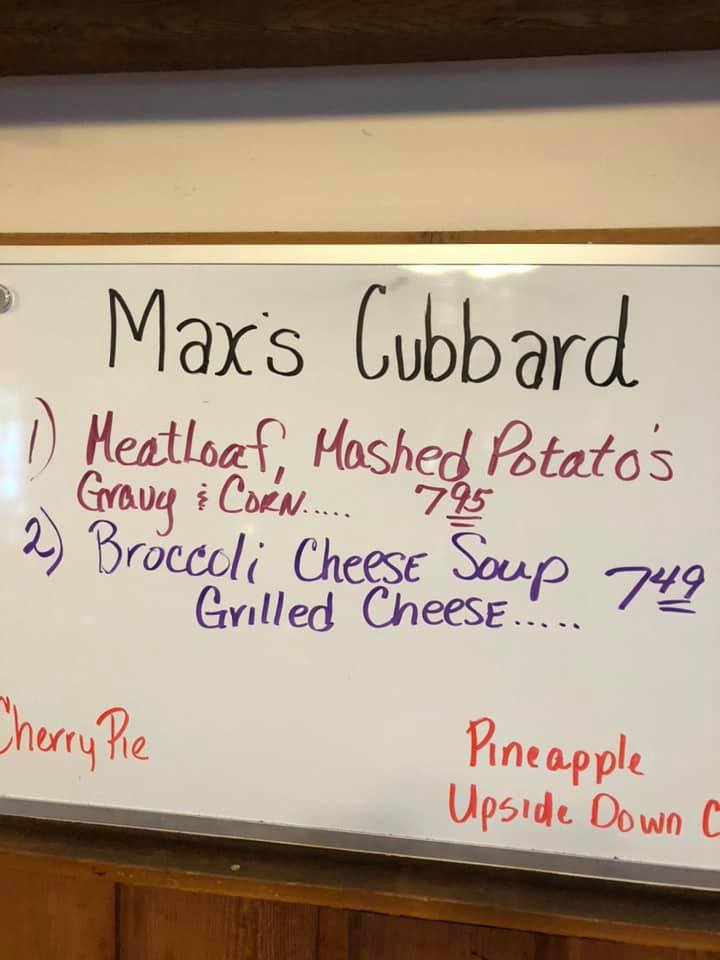 Max's Cubbard
1) Meatloaf, Mashed Potato's
Gravy & Corn..... 7 95
2) Broccoli Cheese Soup 7 49
Grilled Cheese.....
Cherry Pie
Pineapple
Upside Down C